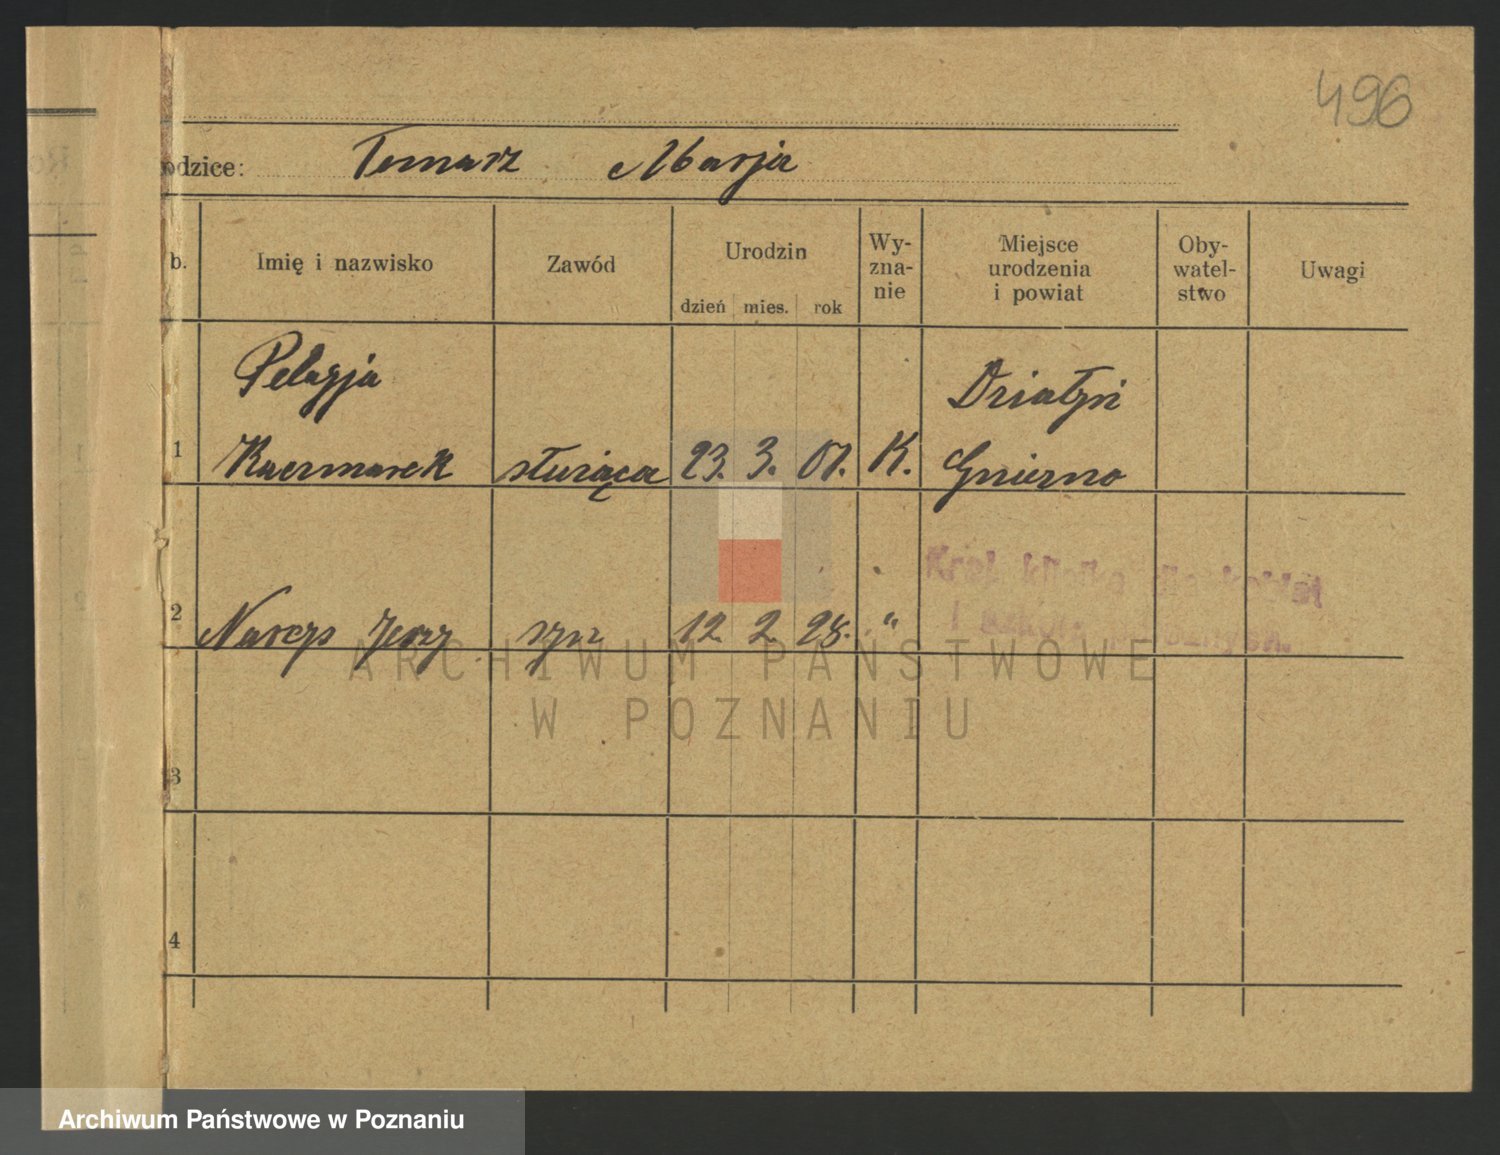 496
odzice: Tomasz Marja
b. Imię i nazwisko Zawód Urodzin dzień mies. rok Wy-
zna-
nie Miejsce
urodzenia
i powiat Oby-
watel-
stwo Uwagi
Pelagja Działyń
1 Kaczmarek służąca 23. 3. 07. K. Gniezno
2 Narcyz Jerzy syn 12. 2. 28. "
ARCHIWUM PAŃSTWOWE
W POZNANIU
3
4
Archiwum Państwowe w Poznaniu